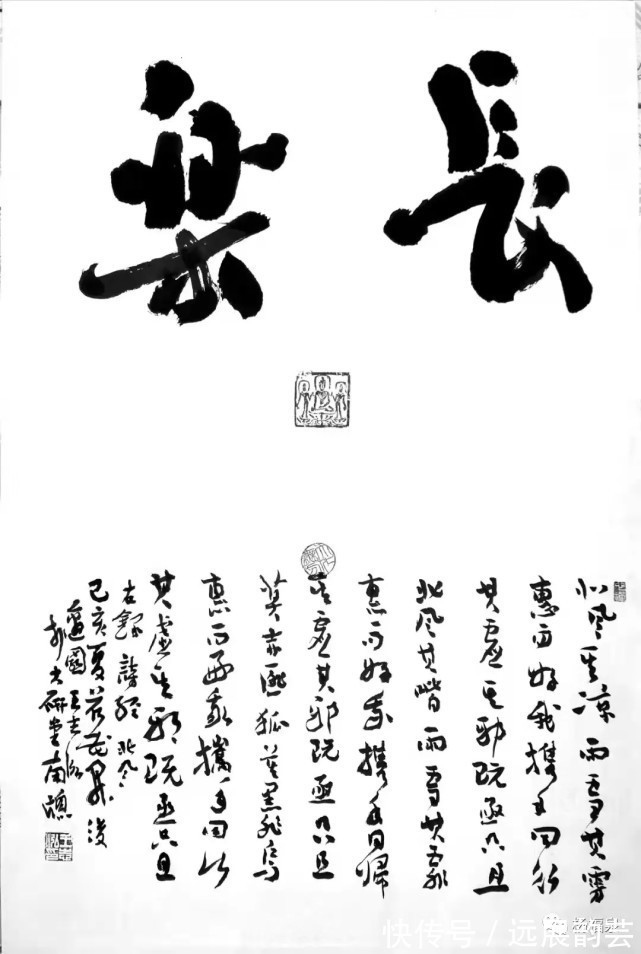 長樂
北風其涼雨雪其雱
惠而好我攜手同行
其虛其邪既亟只且
北風其喈雨雪其霏
惠而好我攜手同歸
其虛其邪既亟只且
莫赤匪狐莫黑匪烏
惠而好我攜手同行
其虛其邪既亟只且
右錄詩經北風
己亥夏荷花
國王志
於大研堂南牕
快传号 / 远晨韵芸